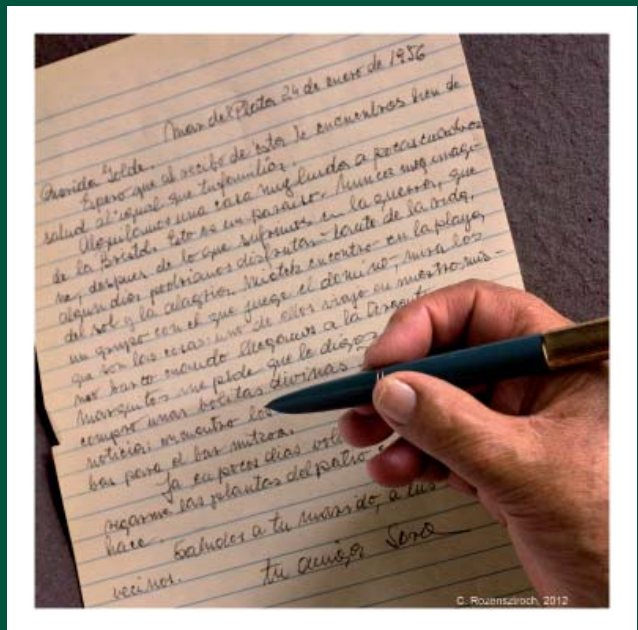 Mar del Plata 24 de enero de 1956
Querida Golde.
Espero que al recibo de esta te encuentres bien de
salud al igual que tu familia.
Alquilamos una casa muy linda a pocas cuadras
de la Bristol. Esto es un paraíso. Nunca me imagi-
né, después de lo que sufrimos en la guerra, que
algún día podríamos disfrutar tanto de la vida,
del sol y la alegría. Mietek encontró en la playa,
un grupo con el que juega el dominó, mira los
que son las cosas: uno de ellos viajó en nuestro mis-
mo barco cuando llegamos a la Argent
Marquitos me pide que le digas
compró unas bolitas divinas
noticia: encuentro los
bas para el bar mitzva.
Ya en pocos días vol
regarme las plantas del patio
hace.
Saludos a tu marido, a tus
vecinos.
tu amiga Sara
C. Rozensztroch, 2012